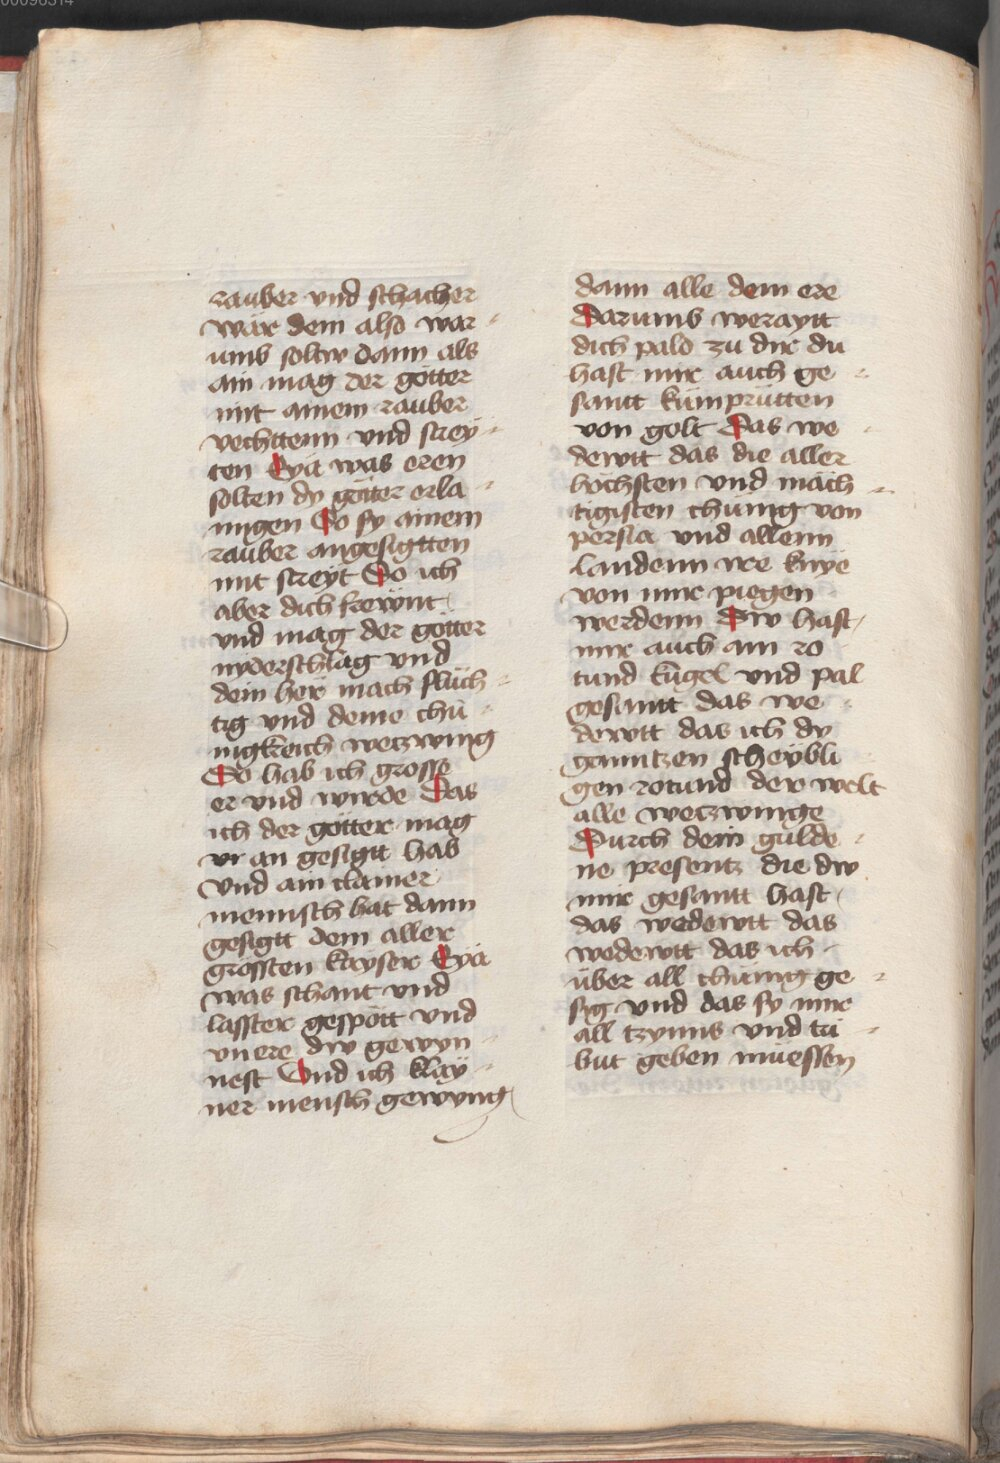 rauber vnd schacher
wär dem also war-
umb soltw dann als
ain mag der götter
mit ainem rauber
vechttenn vnd strey-
ten Eya was eren
solten dy götter erla-
nngen So sy ainem
rauber angesigtten
mit streyt So ich
aber dich frewnt
vnd mag der götter
nyderschlag vnd
dein her mach flüch-
tig vnd deine chü-
nigkreich weczwing
So hab ich grosse
er vnd wirde Das
ich der götter mag
vr an gesigtt hab
Vnd ain clainer
mennsch hat dann
gesigtt dem aller
grössten kayser Eya
was schant vnd
lasster gespött vnd
vnere dw gewyn-
nest Vnd ich klay-
ner mensch gewyng
dann alle dem ere
Darumb weraytt
dich pald zu dir du
hast mir auch ge-
santt kümprütten
von golt Das we-
dewtt das die aller
höchsten vnd mäch-
tigisten chünig von
persia vnd allenn
landenn ire knye
von mir piegen
werdenn Dw hast
mir auch ain ro
tund kugel vnd pal
gesantt das we-
dewtt das ich dy
ganntzen scheybli
gen rotund der welt
alle weczwinge
Durch dein gulde-
ne presentz die dw
mir gesantt hast
das wedewtt das
wedewtt das ich
über all chünig ge-
sig vnd das sy mir
all tzynns vnd tri-
but geben müessen